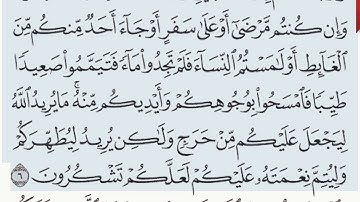 وَإِن كُنتُم مَّرْضَىٰٓ أَوْ عَلَىٰ سَفَرٍ أَوْ جَآءَ أَحَدٌ مِّنكُم مِّنَ
ٱلْغَآئِطِ أَوْ لَٰمَسْتُمُ ٱلنِّسَآءَ فَلَمْ تَجِدُوا۟ مَآءً فَتَيَمَّمُوا۟ صَعِيدًا
طَيِّبًا فَٱمْسَحُوا۟ بِوُجُوهِكُمْ وَأَيْدِيكُم مِّنْهُ ۚ مَا يُرِيدُ ٱللَّهُ
لِيَجْعَلَ عَلَيْكُم مِّنْ حَرَجٍ وَلَٰكِن يُرِيدُ لِيُطَهِّرَكُمْ
وَلِيُتِمَّ نِعْمَتَهُۥ عَلَيْكُمْ لَعَلَّكُمْ تَشْكُرُونَ ٦